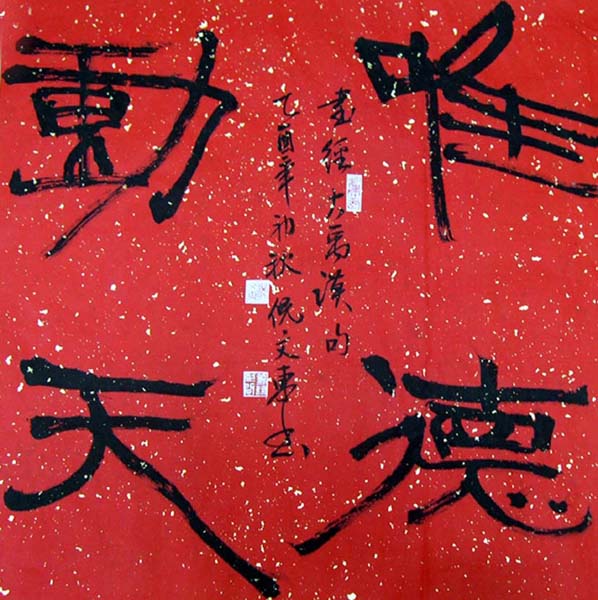 惟德
動天
書經大禹謨句
乙酉年初秋倪文東书